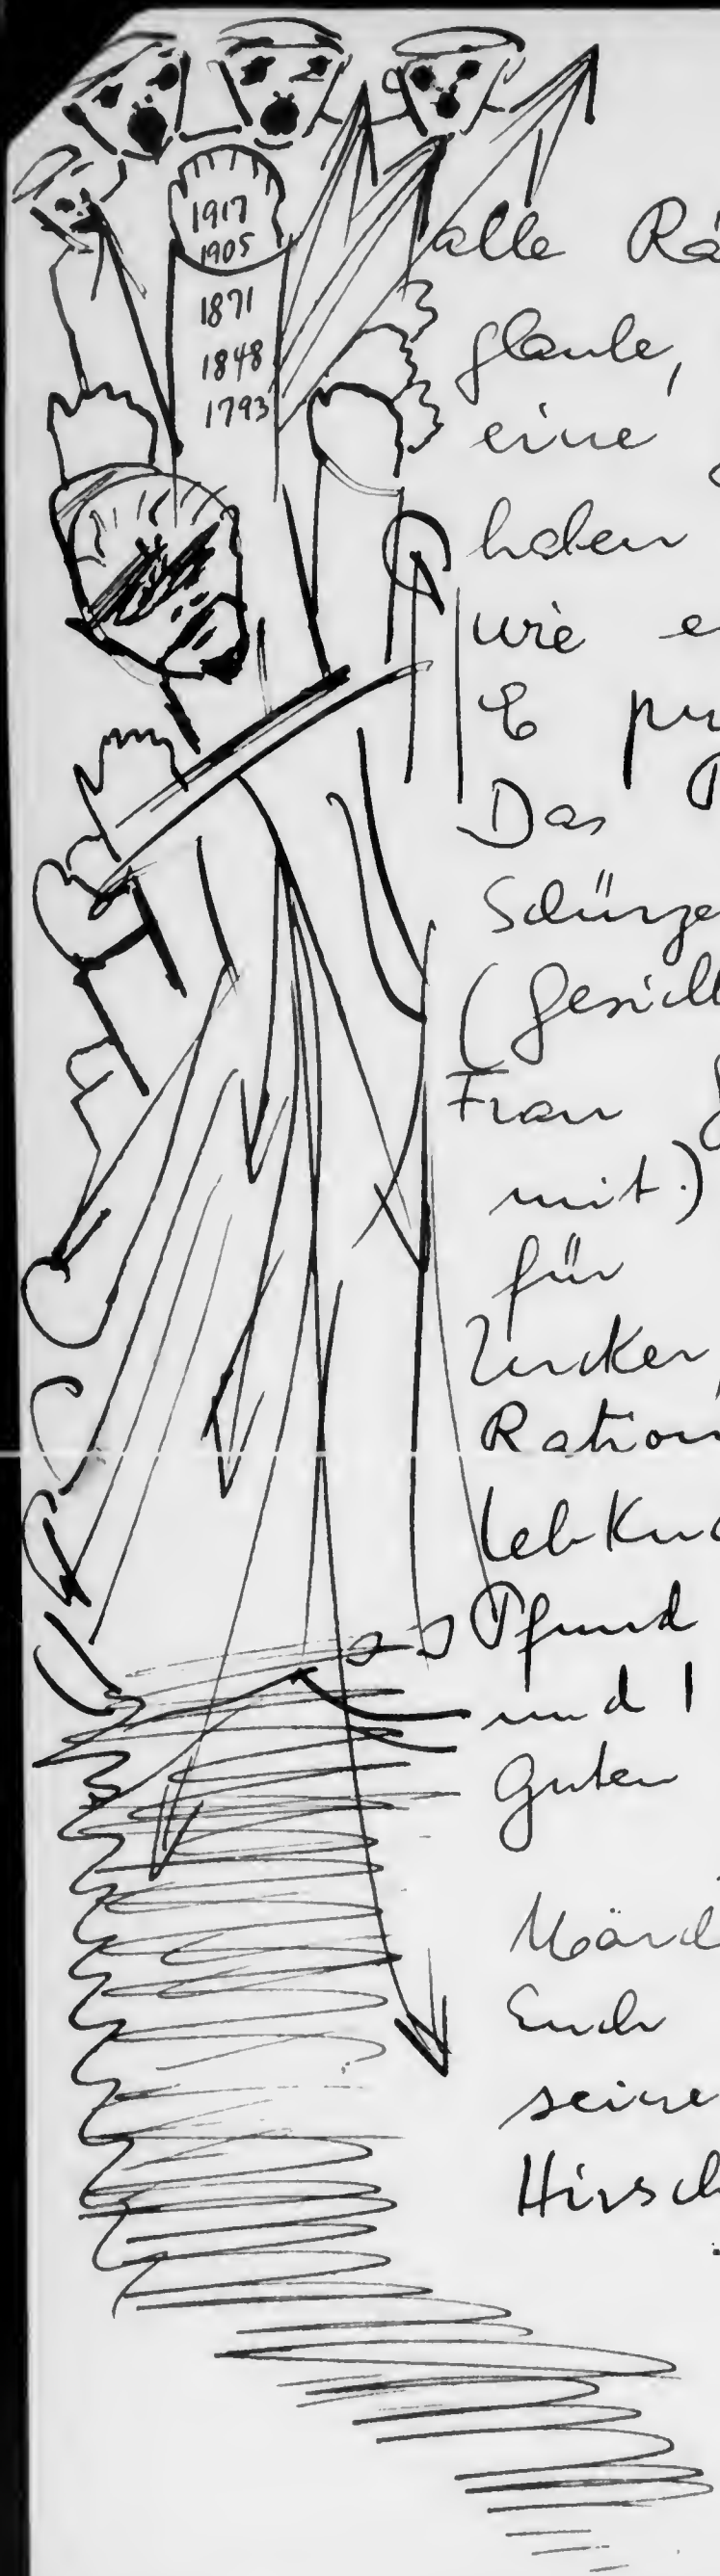 1917
1905
1871
1848
1793
alle Rä
glaube,
eine
haben
wie e
Das
Schürze
(Gesicht
Frau
mit.)
für
Zucker,
Ration
Lebku
Pfund
und 1
guten
Euch
seine
Hirsch